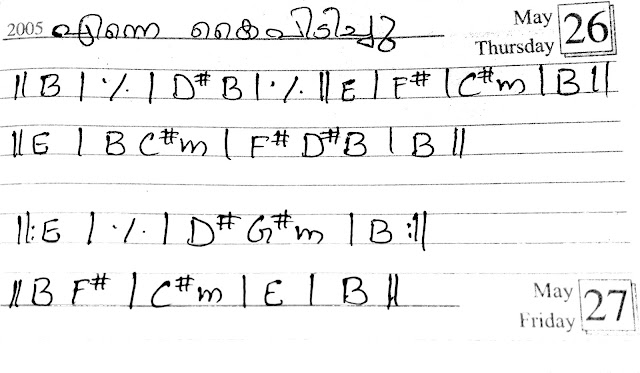 2005 കൈപിടിച്ചു May 26
Thursday
|| B | ٪ | D# B | ٪ || E | F# | C#m | B ||
|| E | B C#m | F# D#B | B ||
||: E | ٪ | D# G#m | B :||
|| B F# | C#m | E | B ||
May 27
Friday